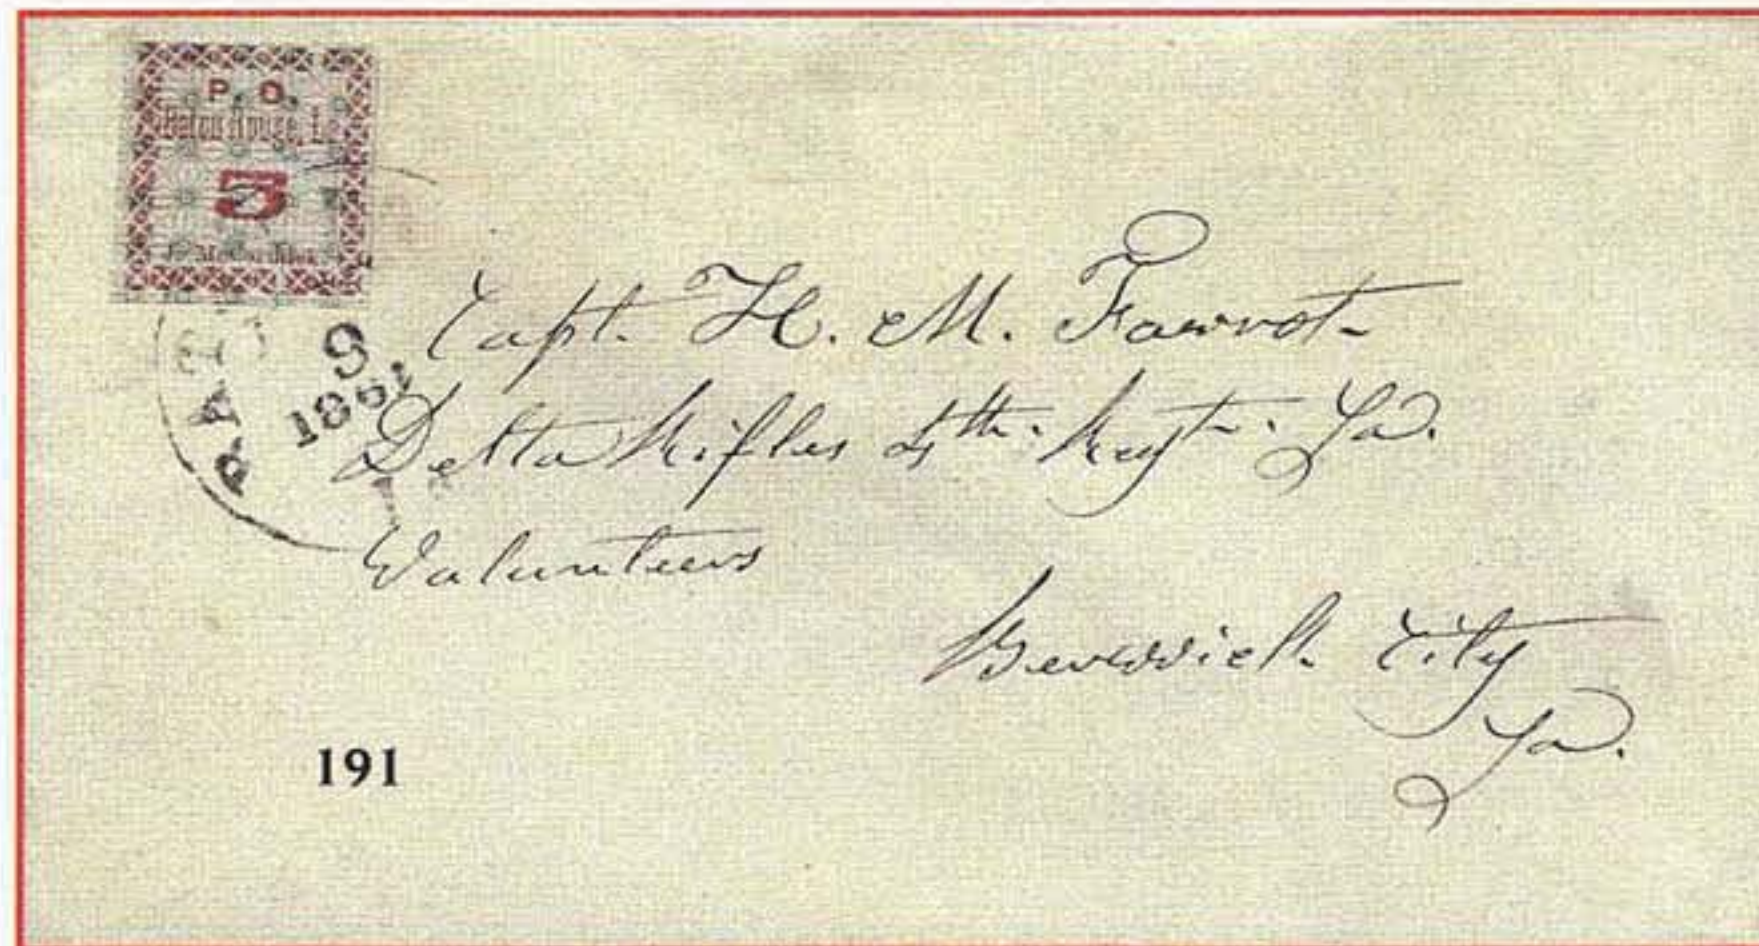 P. O.
Baton Rouge, La.
5
J. McCormick
9
1861
Capt. H. M. Favrot
Delta Rifles 4th. Regt. La.
Volunteers
Berwick City
La.
191